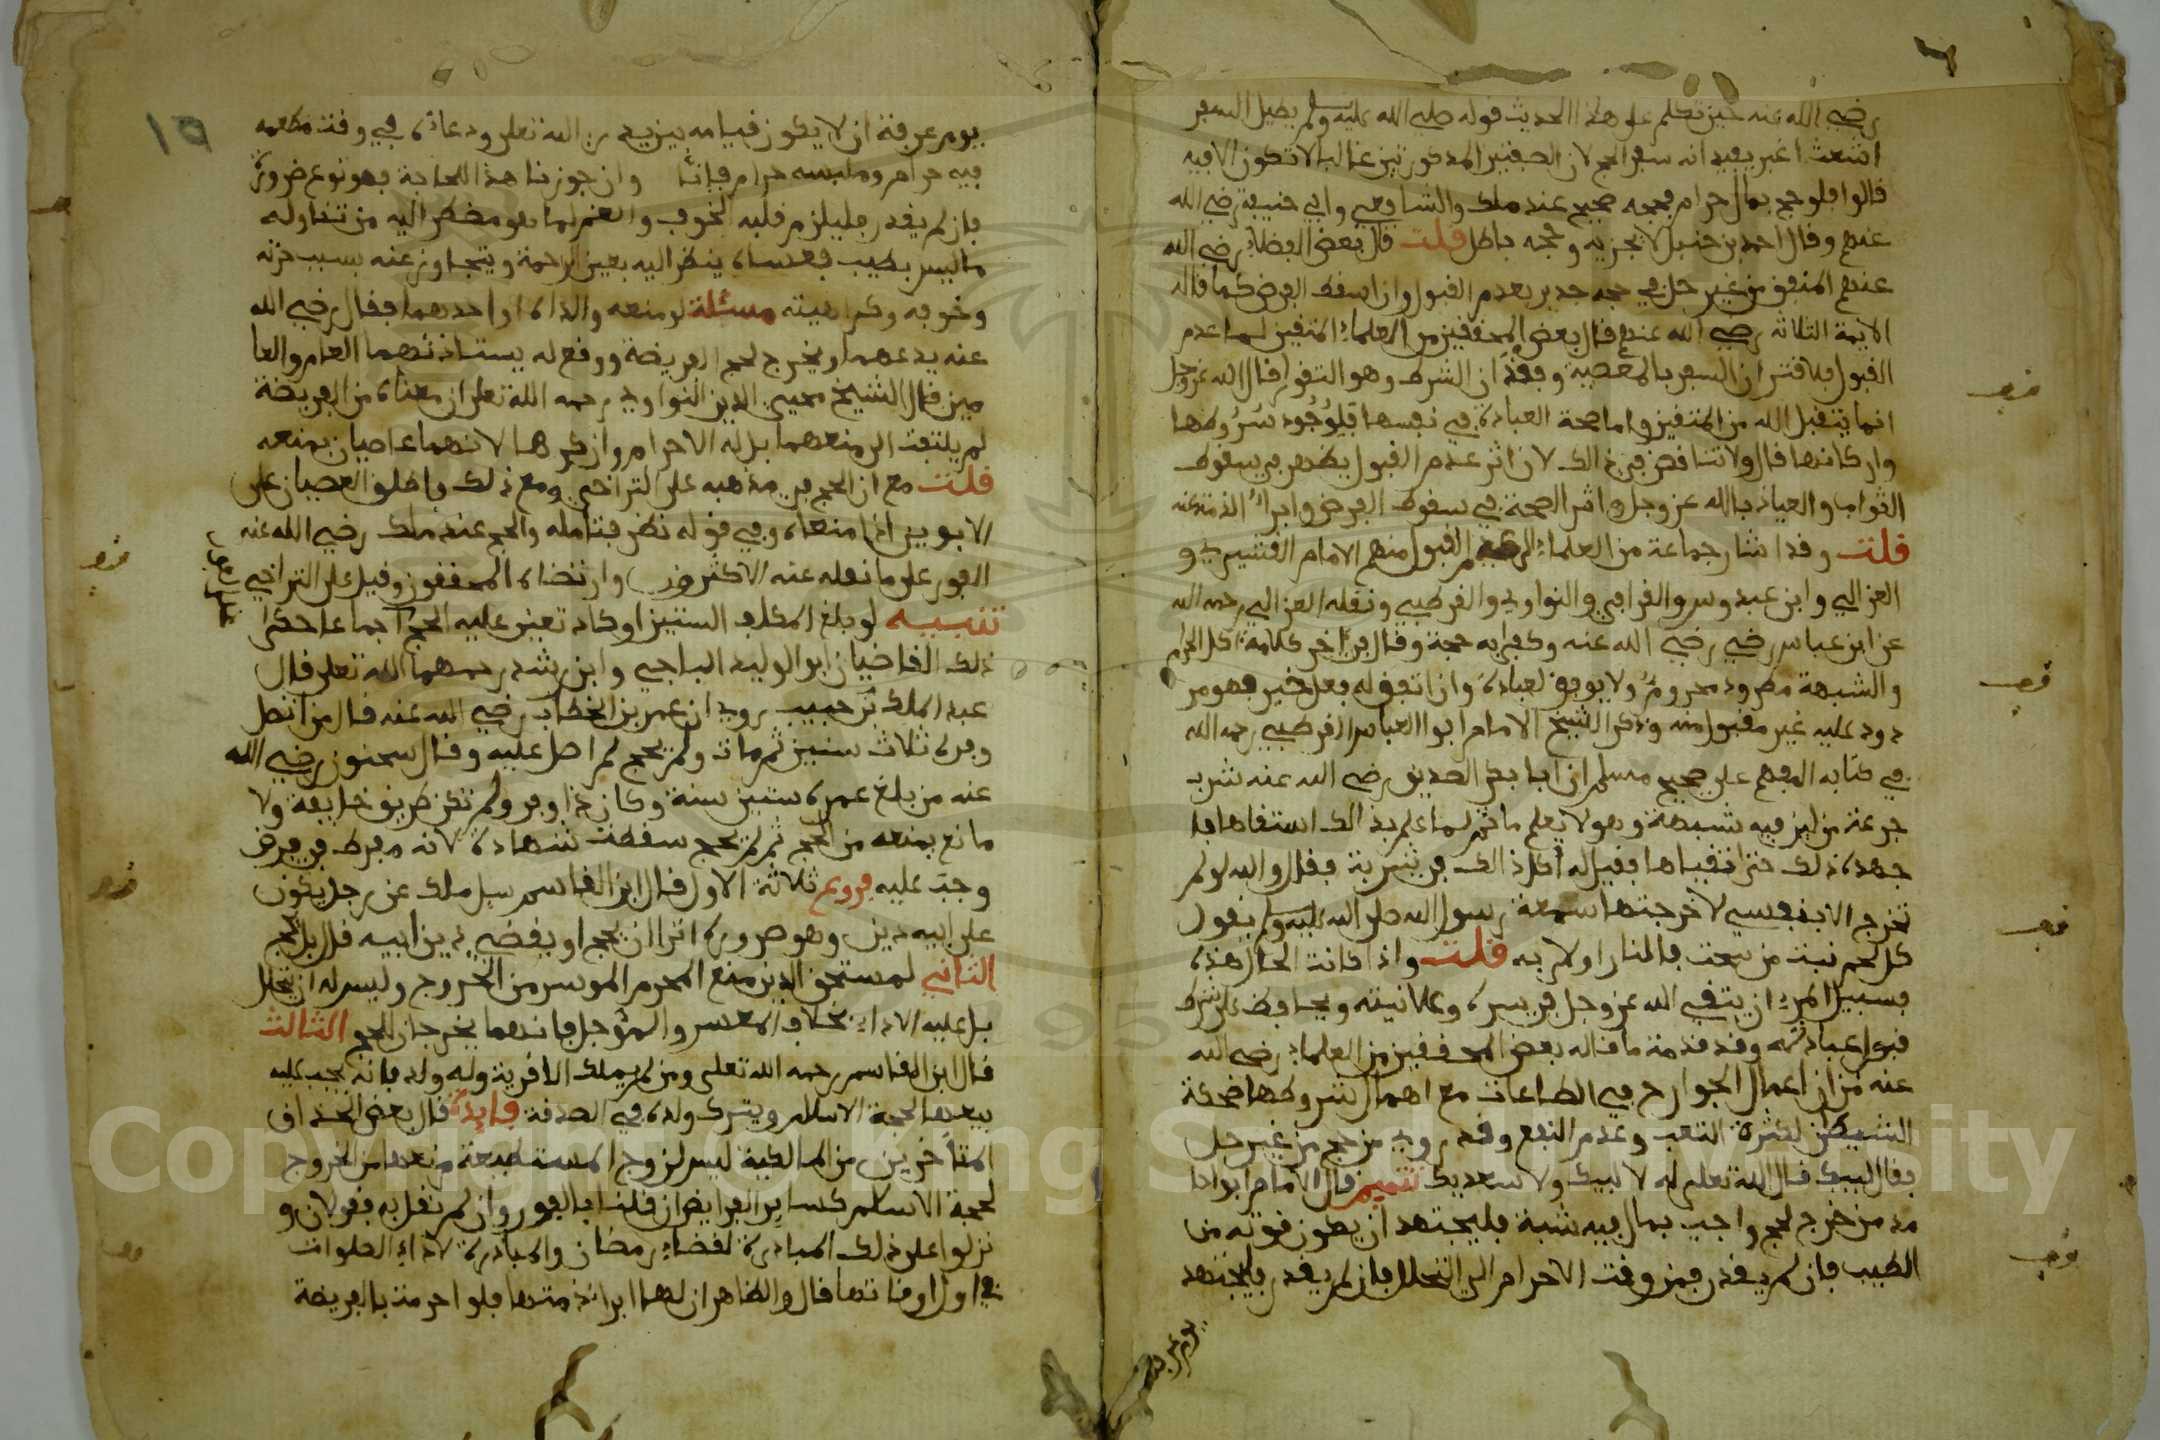 رضي الله عنه حين تكلم على هذا الحديث قوله صلى الله عليه وسلم يطيل السفر
اشعث اغبر يفيد انه سفر الحج لان الصفتين المذكورتين غالبا لا تكون الا فيه
قالوا فلو حج بمال حرام فحجه صحيح عند ملك والشافعي وابي حنيفة رضي الله
عنهم وقال احمد بن حنبل لا يجزيه وحجه باطل قلت قال بعض الفضلاء رضي الله
عنهم المنفق من غير حل في حجه جدير بعدم القبول وان اسقط الفرض كما قاله
الايمة الثلاثة رضي الله عنهم قال بعض المحققين من العلماء المتقين لما عدم
القبول فلاقتران السفر بالمعصية وفقدان الشرط وهو التقوى قال الله عز وجل
انما يتقبل الله من المتقين واما صحة العبادة في نفسها فلوجود شروطها
واركانها قال ولا تناقض في ذالك لان اثر عدم القبول يظهر في سقوط
الثواب والعياذ بالله عز وجل واثر الصحة في سقوط الفرض وابراء الذمة عنه
قلت وقد اشار جماعة من العلماء الى عدم القبول منهم الامام القشيري و
الغزالي وابن عبدوس والقرافي والنواوي والقرطبي ونقله الغزالي رحمه الله
عن ابن عباس رضي رضي الله عنه وكفى به حجة وقال في اخر كلامه اكل الحرام
والشبهة مطرود محروم ولا يوفق لعبادة وان اتفق له فعل خير فهو مر
دود عليه غير مقبول منه وذكر الشيخ الامام ابوا العباس القرطبي رحمه الله
في كتابه المفهم على صحيح مسلم ان ابا بكر الصديق رضي الله عنه شرب
جرعة من لبن فيه شبهة وهو لا يعلم ثم لما علم بذالك استقاها فا
جهده ذلك حتى تقياها فقيل له اكل ذالك في شربة فقال والله لو لم
تخرج الا بنفسي لاخرجتها سمعت رسول الله صلى الله عليه وسلم يقول
كل لحم نبت من سحت فالنار اولى به قلت واذا كانت الحال هذه
فسبيل المرء ان يتقي الله عز وجل في سره وعلانيته ويحافظ على شرط
قبول عبادته وقد قدمنا ما قاله بعض المحققين من العلماء رضي الله
عنه من ان اعمال الجوارح في الطاعات مع اهمال شروطها ضحكة
الشيطان لكثرة التعب وعدم النفع وقد روي من حج من غير حل
فقال لبيك قال الله تعلى له لا لبيك ولا سعديك تتميم قال الامام ابو حا
مد من خرج لحج واجب بمال فيه شبهة فليجتهد ان يكون قوته من
الطيب فان لم يقدر فمن وقت الاحرام الى التحلل فان لم يقدر فليجتهد
يوم عرفة
١٥
يوم عرفة ان لا يكون قيامه بين يدي الله تعلى ودعاؤه في وقت مطعمه
فيه حرام وملبسه حرام فإنا وان جوزنا هذا للحاجة فهو نوع ضرورة
فان لم يقدر فليلزم قلبه الخوف والغم لما هو مضطر اليه من تناوله
ما ليس بطيب فعساه ينظر اليه بعين الرحمة ويتجاوز عنه بسبب حزنه
وخوفه وكراهيته مسئلة لو منعه والداه او احدهما فقال رضي الله
عنه يدعهما ويخرج لحج الفريضة ووقع له يستاذنهما العام والعا
مين قال الشيخ محيي الدين النواوي رحمه الله تعلى ان منعاه من الفريضة
لم يلتفت الى منعهما بل له الاحرام وان كرها لانهما عاصيان بمنعه
قلت مع ان الحج في مذهبه على التراخي ومع ذلك فاطلق العصيان على
الابوين اذا منعاه وفي قوله نظر فتامله والحج عند ملك رضي الله عنه
الفور على ما نقله عنه الاكثرون وارتضاه المحققون وقيل على التراخي
تنبيه لو بلغ المكلف الستين او كاد تعين عليه الحج اجماعا حكى
ذلك القاضيان ابو الوليد الباجي وابن رشد رحمهما الله تعلى قال
عبد الملك بن حبيب روي ان عمر بن الخطاب رضي الله عنه قال من اتصل
وفره ثلاث سنين ثم مات ولم يحج لم اصل عليه وقال سحنون رضي الله
عنه من بلغ عمره ستين سنة وكان ذا وفر ولم تكن طريق خايفة ولا
مانع يمنعه من الحج ثم لم يحج سقطت شهادته لانه مفرط في فرض
وجب عليه فروع ثلاثة الاول قال ابن القاسم سيل ملك عن رجل يكون
على ابيه دين وهو صرورة اترا ان يحج او يقضي دين ابيه قال بل يحج
الثاني لمستحق الدين منع المحرم الموسر من الخروج وليس له ان يتحلل
بل عليه الاداء بخلاف المعسر والمؤجل فانهما يخرجان للحج الثالث
قال ابن القاسم رحمه الله تعلى ومن لم يملك الا قرية وله ولد فانه يجب عليه
بيعها لحجة الاسلام ويترك ولده في الصدقة فايدة قال بعض الحذاق
المتاخرين من المالكية ليس لزوج المستطيعة منعها من الخروج
لحجة الاسلام كساير الفرايض ان قلنا بالفور وان لم نقل به فقولان و
نزلوا على ذلك المبادرة لقضاء رمضان والمبادرة لاداء الصلوات
في اول اوقاتها قال والظاهر ان لها ابراء ذمتها فلو احرمت بالفريضة